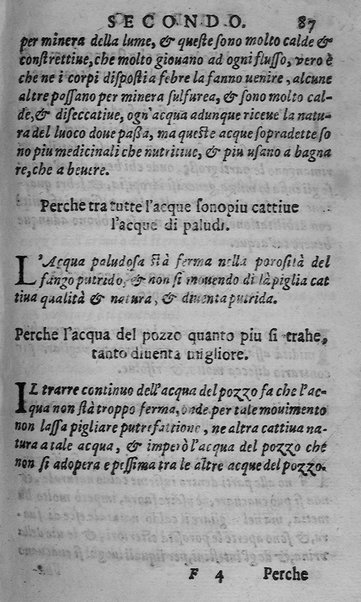 SECONDO. 87
per minera della lume, & queste sono molto calde &
constrettiue, che molto giouano ad ogni flusso, vero è
che ne i corpi disposti a febre la fanno uenire, alcune
altre possano per minera sulfurea, & sono molto cal
de, & disseccatiue, ogn'acqua adunque riceue la natu
ra del luoco doue passa, ma queste acque sopradette so
no piu medicinali che nutrittiue, & piu usano a bagna
re, che a beuere.
Perche tra tutte l'acque sono piu cattiue
l'acque di paludi.
L'Acqua paludosa stà ferma nella porosità del
fango putrido, & non si mouendo di là piglia cat
tiua qualità & natura, & diuenta putrida.
Perche l'acqua del pozzo quanto piu si trahe,
tanto diuenta migliore.
IL trarre continuo dell'acqua del pozzo fa che l'ac-
qua non stà troppo ferma, onde per tale mouimento
non lassa pigliare putrefattione, ne altra cattiua na
tura a tale acqua, & imperò l'acqua del pozzo chè
non si adopera e pessima tra le altre acque del pozzo.
F 4 Perche